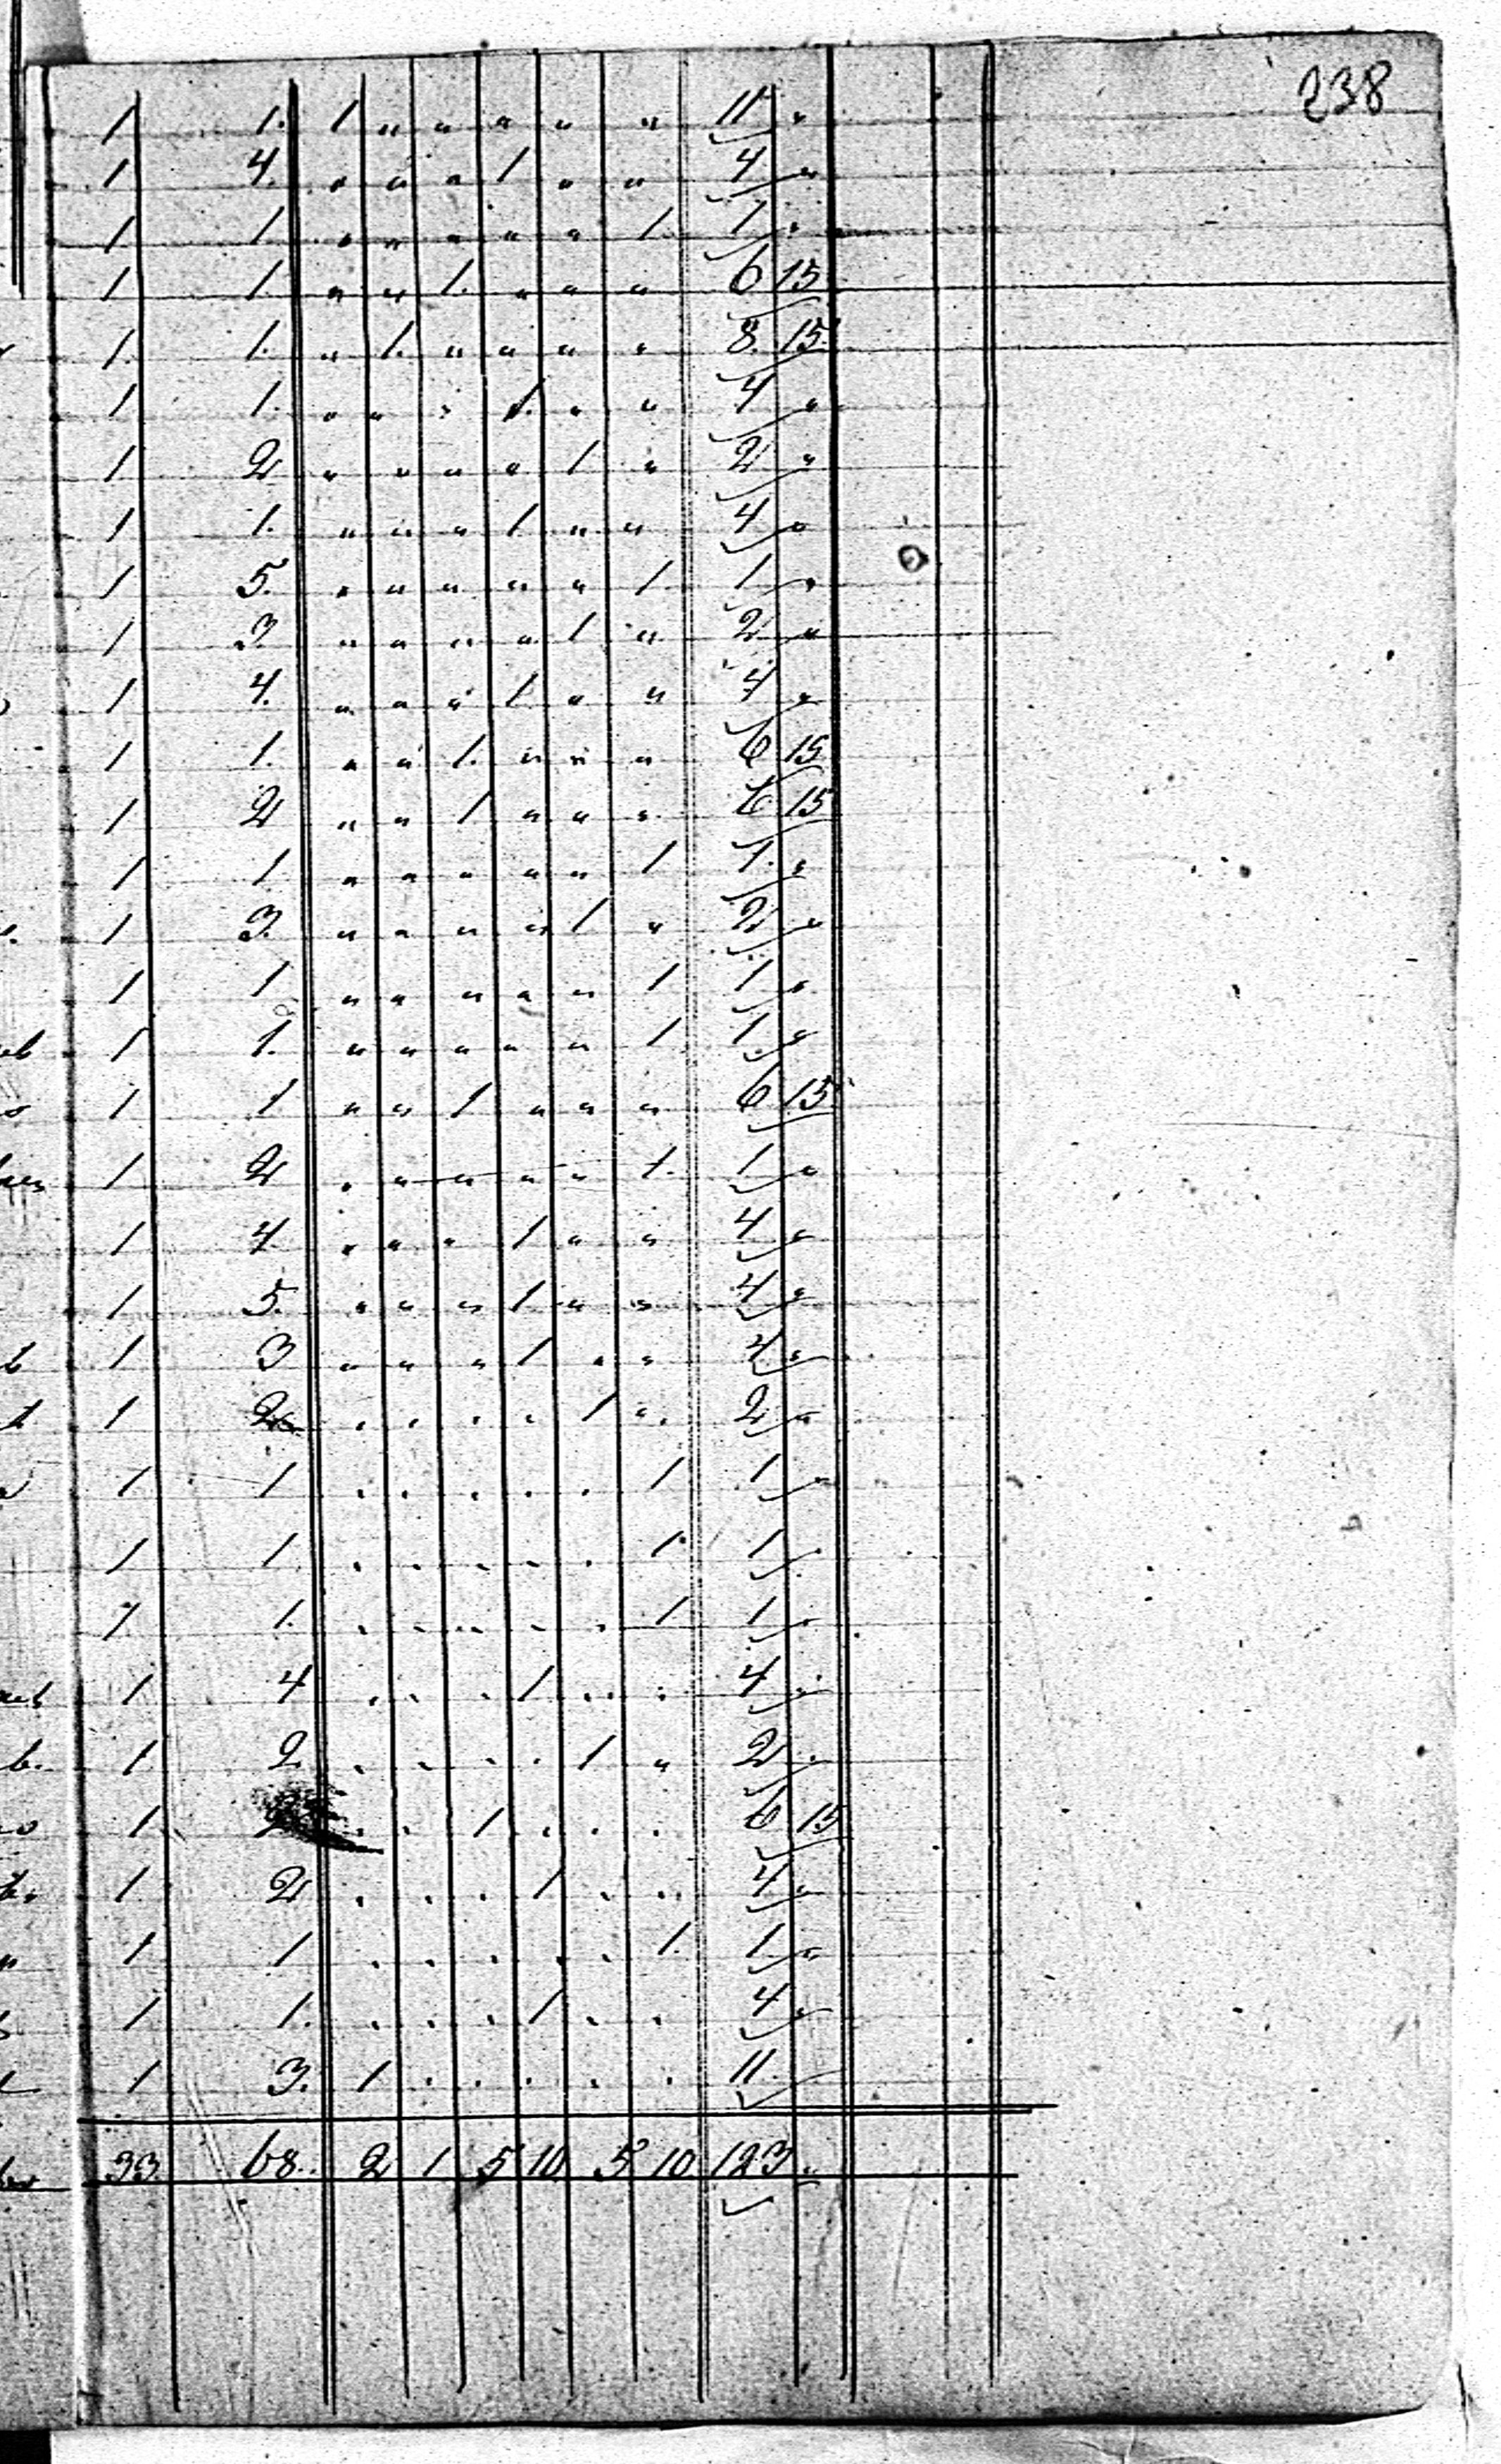 238
1 1. 1 " " " " " 11 "
1 4. " " " 1 " " 4 "
1 1 " " " " " 1. 1 "
1 1. " " 1. " " " 6 15
1. 1. " 1. " " " " 8. 15.
1 1. " " " 1. " " 4 "
1 2 " " " " 1 " 2 "
1 1. " " " 1 " " 4 "
1 5. " " " " " 1. 1 "
1 3. " " " " 1 " 2 "
1 4. " " " 1. " " 4 "
1 1. " " 1. " " " 6 15
1 2 " " 1 " " " 6 15
1 1 " " " " " 1 1. "
1 3. " " " " 1 " 2 "
1 1 " " " " " 1 1 "
1 1. " " " " " 1 1. "
1 1 " " 1 " " " 6 15
1 2 " " " " " 1. 1 "
1 4 " " " 1 " " 4 "
1 5. " " " 1 " " 4 "
1 3 " " " 1 " " 4 "
1 2 . . . . 1 " 2 "
1 1 . . . . . 1 1 "
1 1 . . . . . 1. 1 .
1 1. . . . . . 1 1 "
1 4 . . . 1 . . 4 .
1 2. . . . . 1 " 2 .
1 . . 1 . . . 6 15
1 2 . . . 1 . . 4 "
1 1 . . . . . 1. 1 "
1 1. . . . 1 . . 4 "
1 3. 1 . . . . . 11.
33 68. 2 1 5 10 5 10 123 "